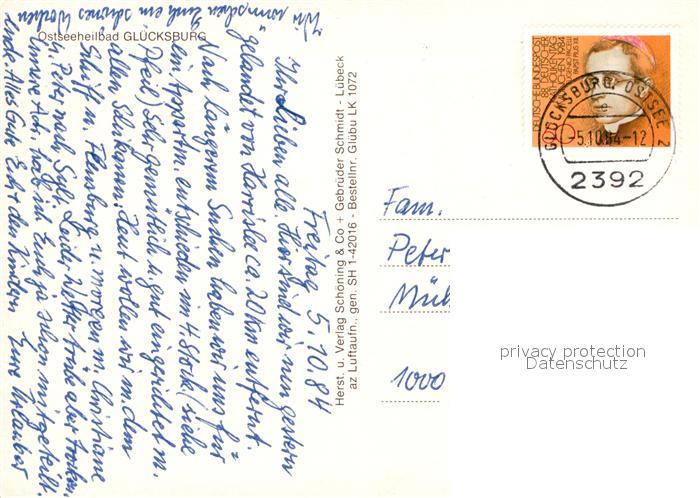 Ostseeheilbad GLÜCKSBURG
Wir wünschen Euch ein schönes Wochen
Freitag 5.10.84
Ihr Lieben alle. Hier sind wir nun gestern
gelandet von Harrislee ca. 20 km entfernt.
Nach längerem Suchen haben wir uns für
ein Appartm. entschieden im 4. Stock (siehe
Pfeil) Sehr gemütlich u. gut eingerichtet m.
allen Schikanen. Heut wollen wir m dem
Schiff n. Flensburg u. morgen m. Christiane
u. Peter nach Sylt. Leider Wetter trübe aber trocken.
Unsere Adr. hab ich Euch ja schon mitgeteilt.
ende. Alles Gute Euch u. den Kindern Eure Urlauber
Herst. u. Verlag Schöning & Co + Gebrüder Schmidt - Lübeck
az Luftaufn., gen. SH 1-42016 - Bestellnr. Glübu LK 1072
DEUTSCHE BUNDESPOST
88. DEUTSCHER
KATHOLIKENTAG
MÜNCHEN 1984
PAPST PIUS XII.
GLÜCKSBURG, OSTSEE 2
-5.10.84-12
2392
Fam.
Peter
Mül
1000
privacy protection
Datenschutz